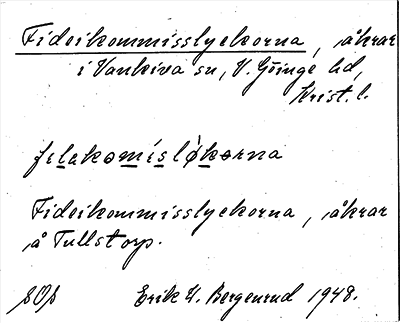 Fideikommisslyckorna, åkrar
i Vankiva sn, V. Göinge hd,
Krist. l.
felakomíslòkorna
Fideikommisslyckorna, åkrar
å Tullstorp.
Erik W. Bergenrud 1948.